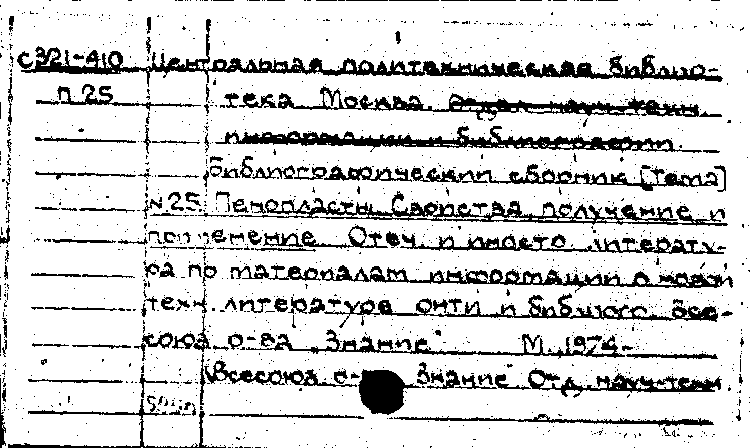 С321-410 Центральная политехническая библио-
п 25 тека Москва. Отдел науч.-техн.
информации и библиографии.
Библиографический сборник [Тема]
№25. Пенопласты. Свойства, получение и
применение. Отеч. и иностр. литерату-
ра по материалам информации о новой
техн. литературе ОНТИ и библиогр. Все-
союз. о-ва „Знание" М., 1974-
Всесоюз. о- Знание" Отд. науч.-техн.